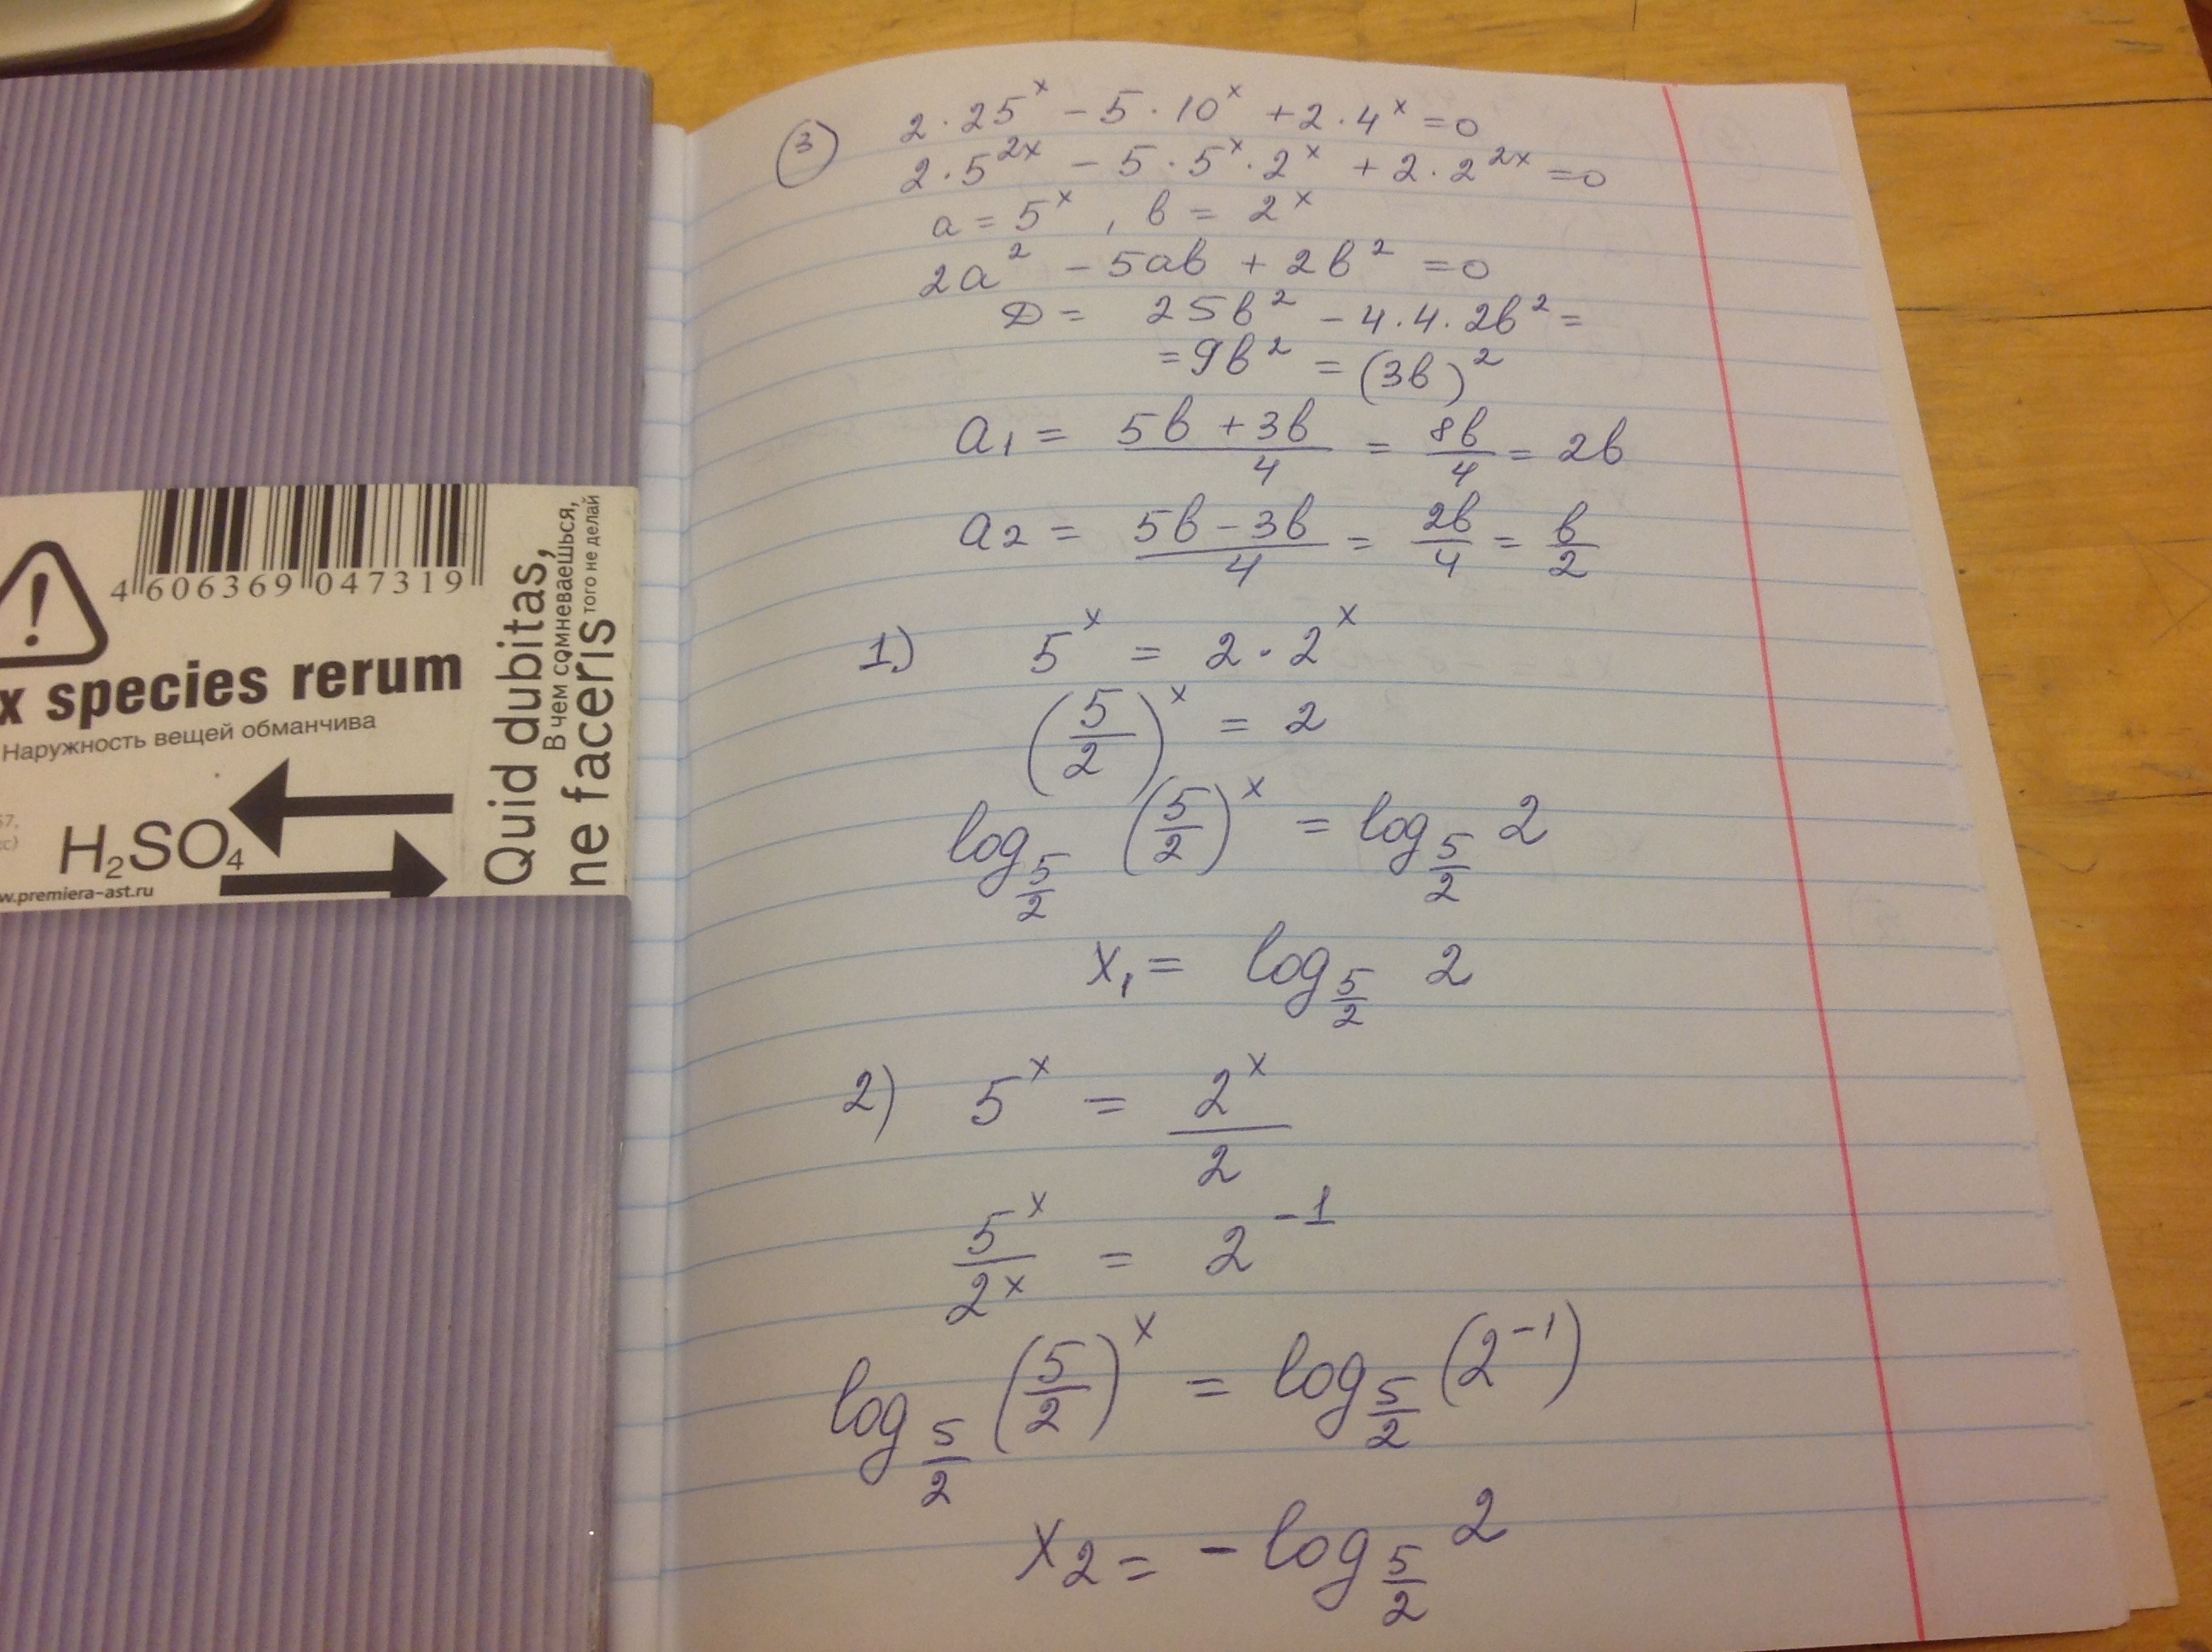 4 606369 047319
x species rerum
Наружность вещей обманчива
H₂SO₄
w.premiera-ast.ru
Quid dubitas,
В чем сомневаешься,
ne faceris того не делай
③ 2·25ˣ - 5·10ˣ + 2·4ˣ = 0
2·5²ˣ - 5·5ˣ·2ˣ + 2·2²ˣ = 0
a = 5ˣ, b = 2ˣ
2a² - 5ab + 2b² = 0
D = 25b² - 4·4·2b² =
= 9b² = (3b)²
a₁ = (5b + 3b)/4 = 8b/4 = 2b
a₂ = (5b - 3b)/4 = 2b/4 = b/2
1) 5ˣ = 2·2ˣ
(5/2)ˣ = 2
log_{5/2} (5/2)ˣ = log_{5/2} 2
x₁ = log_{5/2} 2
2) 5ˣ = 2ˣ/2
5ˣ/2ˣ = 2⁻¹
log_{5/2} (5/2)ˣ = log_{5/2} (2⁻¹)
x₂ = - log_{5/2} 2